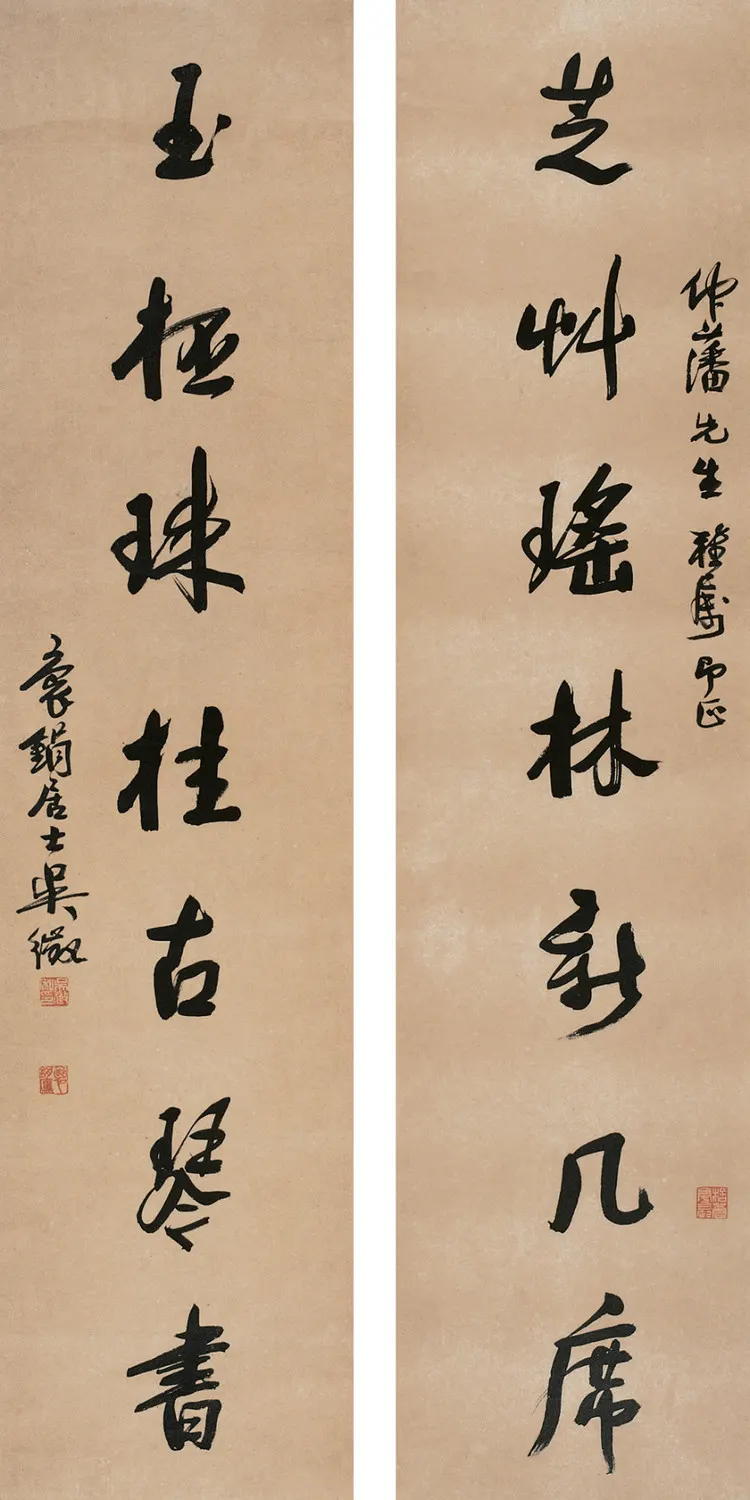 芝艸瑤林新几席
仲藩先生雅屬即正
玉柽珠柱古琴書
袌鋗居士吳徵